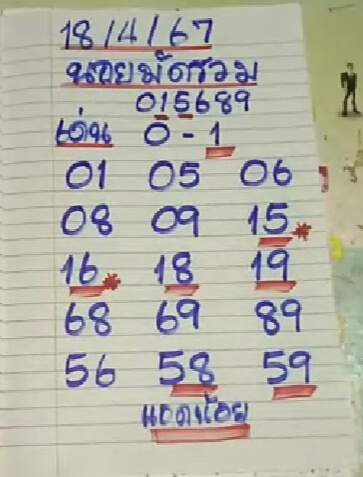 18/4/67
หอยมัดรวม
015689
เด่น 0-1
01 05 06
08 09 15*
16* 18 19
68 69 89
56 58 59
แอดน้อย